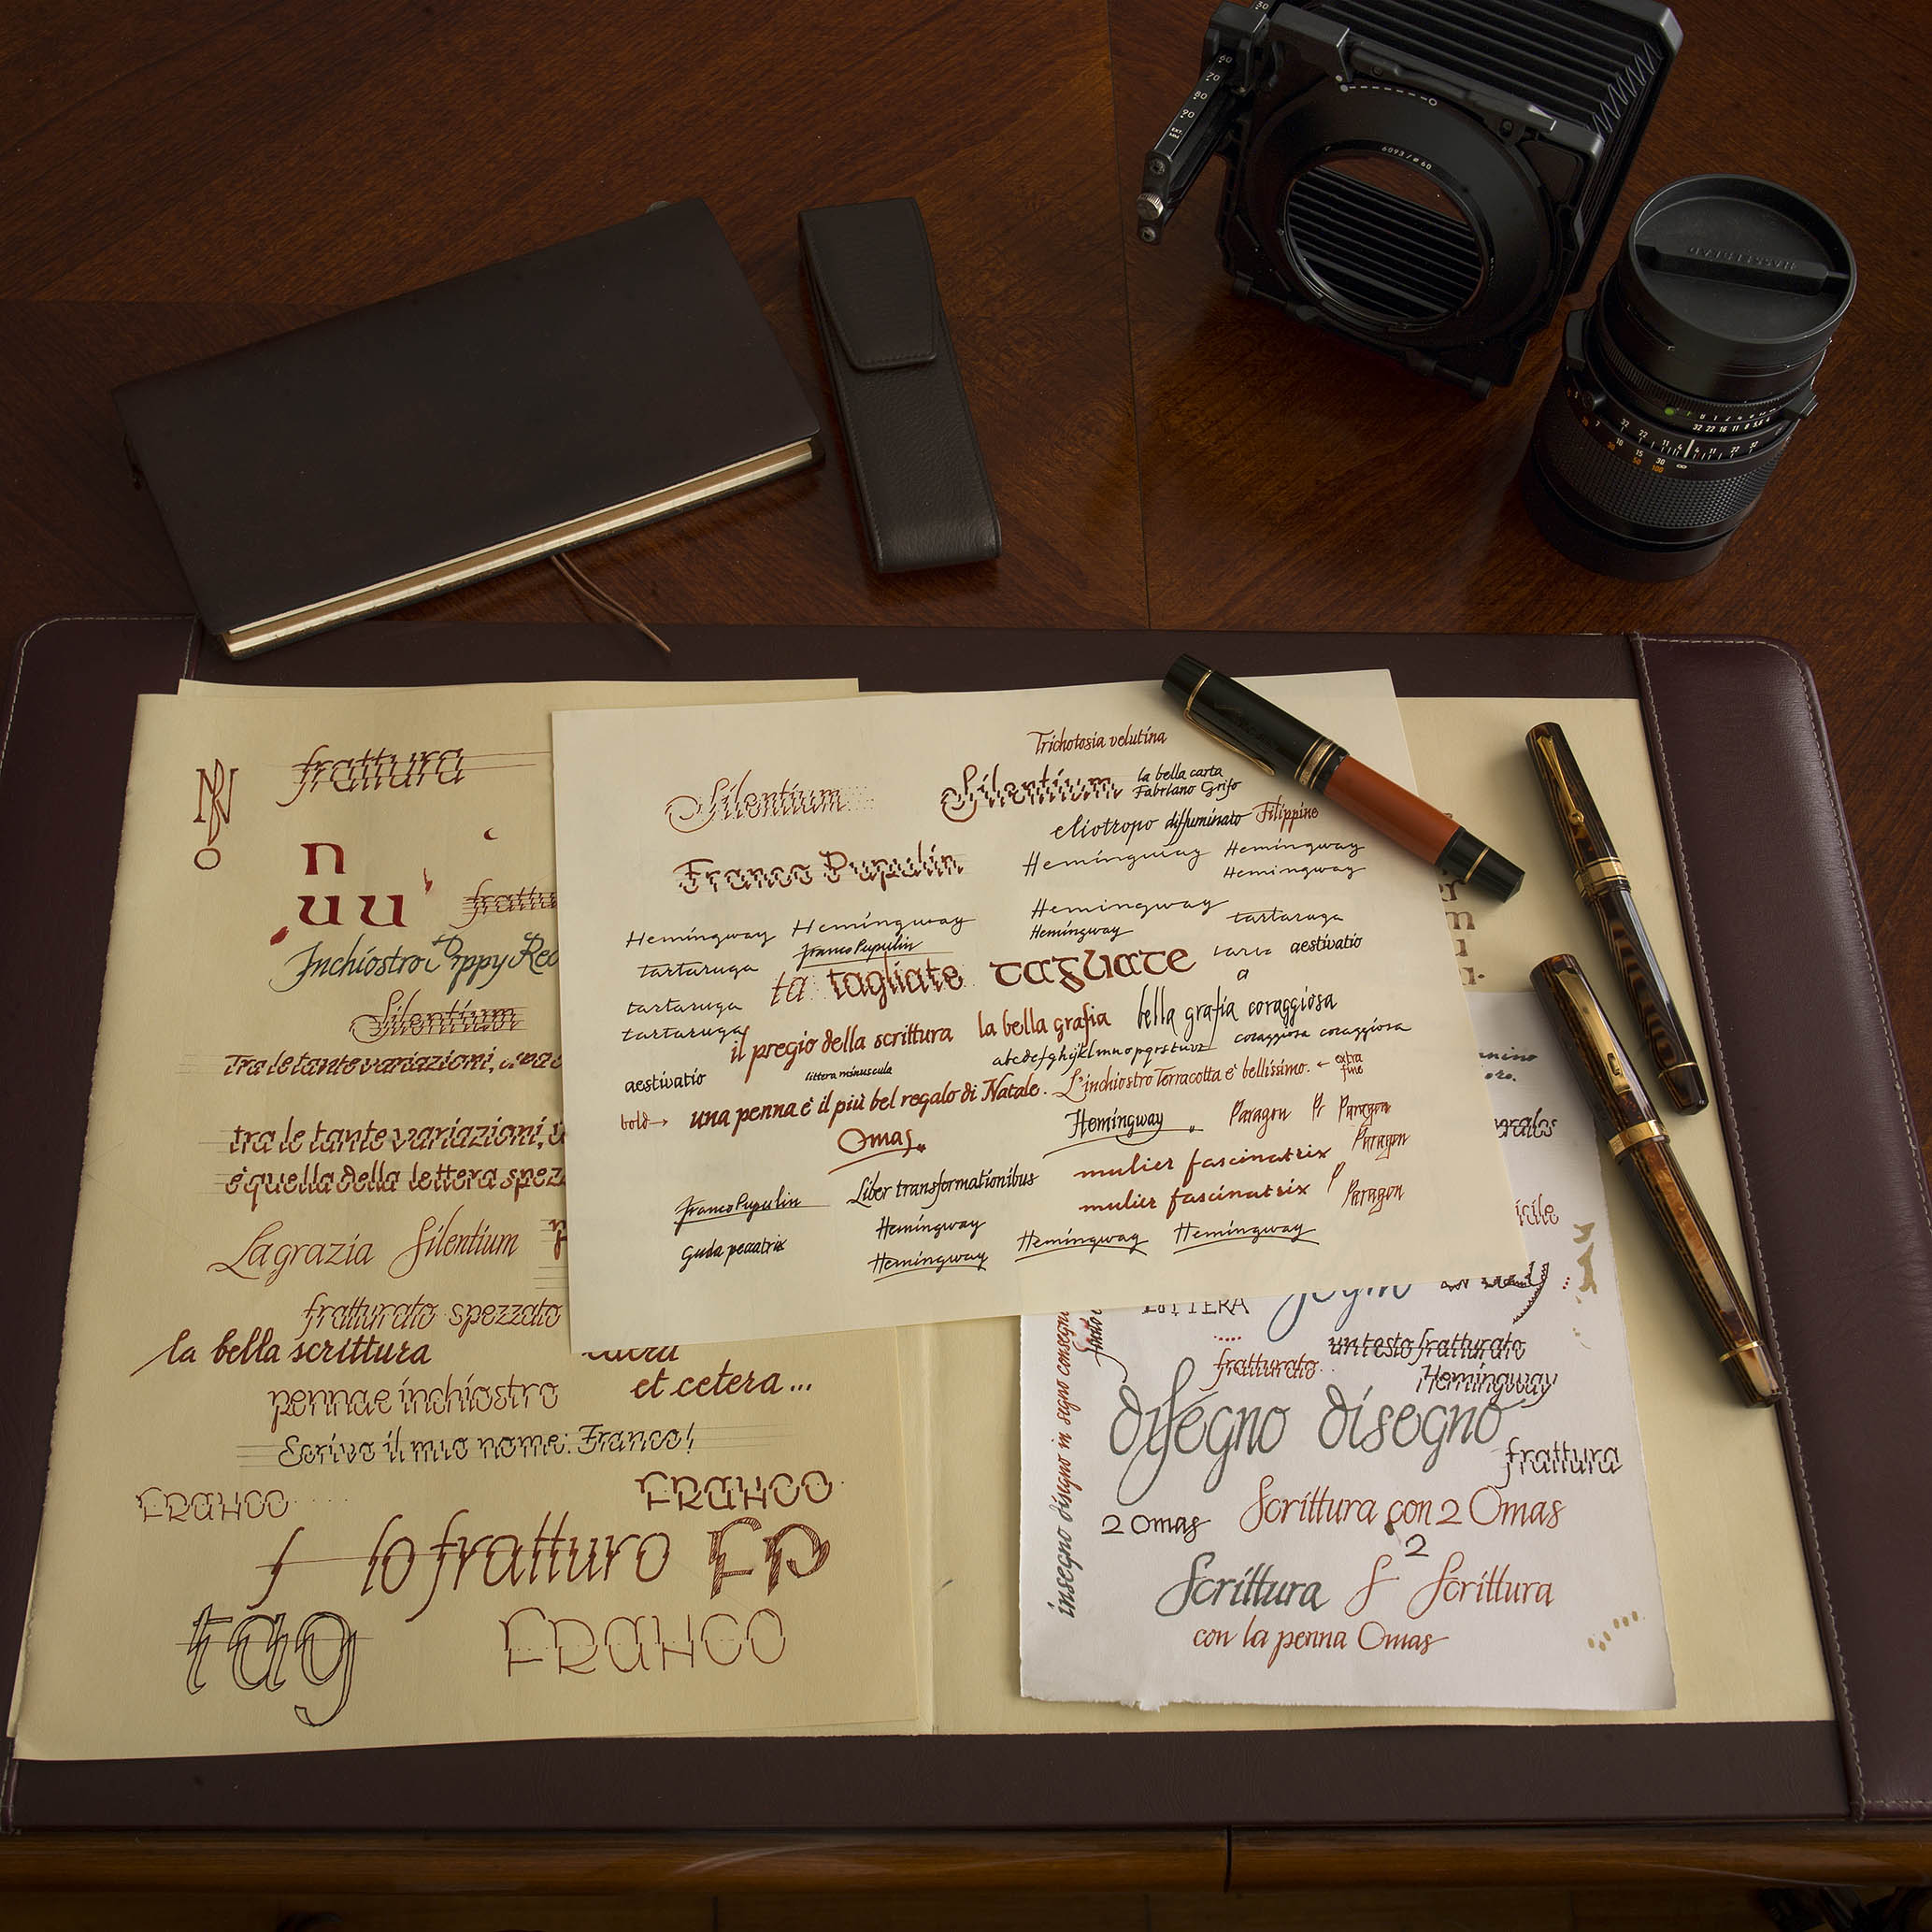 60
70
80
90
EXT.
MM
6093/ø60
HASSELBLAD
32 22 16 11 8 5.6 4
32 22 11 4 4 11 22 32
15 30 ∞
50 100
frattura
n
uu
frattu
Inchiostro Poppy Red
Silentium
Tra le tante variazioni,
tra le tante variazioni,
è quella della lettera spez
La grazia Silentium
fratturato spezzato
la bella scrittura
et cetera...
penna e inchiostro
Scrivo il mio nome: Franco!
FRANCO
FRANCO
f Io fratturo FP
tag FRANCO
Trichotosia velutina
Silentium Silentium
la bella carta
Fabriano Grifo
eliotropo diffuminato Filippine
Franco Pupulin
Hemingway Hemingway
Hemingway
Hemingway Hemingway
Hemingway tartaruga
Hemingway
tartaruga Franco Pupulin
ta tagliate tagliate
aestivatio
a
tartaruga
tartaruga
il pregio della scrittura la bella grafia bella grafia coraggiosa
coraggiosa coraggiosa
abcdefghijklmnopqrstuvz
aestivatio littera minuscula
bold → una penna è il più bel regalo di Natale. L'inchiostro Terracotta è bellissimo. ← extra fine
Omas
Hemingway Paragon P Paragon
Paragon
mulier fascinatrix
Liber transformationibus
Franco Pupulin
mulier fascinatrix P Paragon
Hemingway
Guda peccatrix
Hemingway Hemingway Hemingway
LETTERA
un testo fratturato
fratturato
Hemingway
disegno disegno
frattura
insegno disegno in segno consegn
2 Omas Scrittura con 2 Omas
2
Scrittura S Scrittura
con la penna Omas